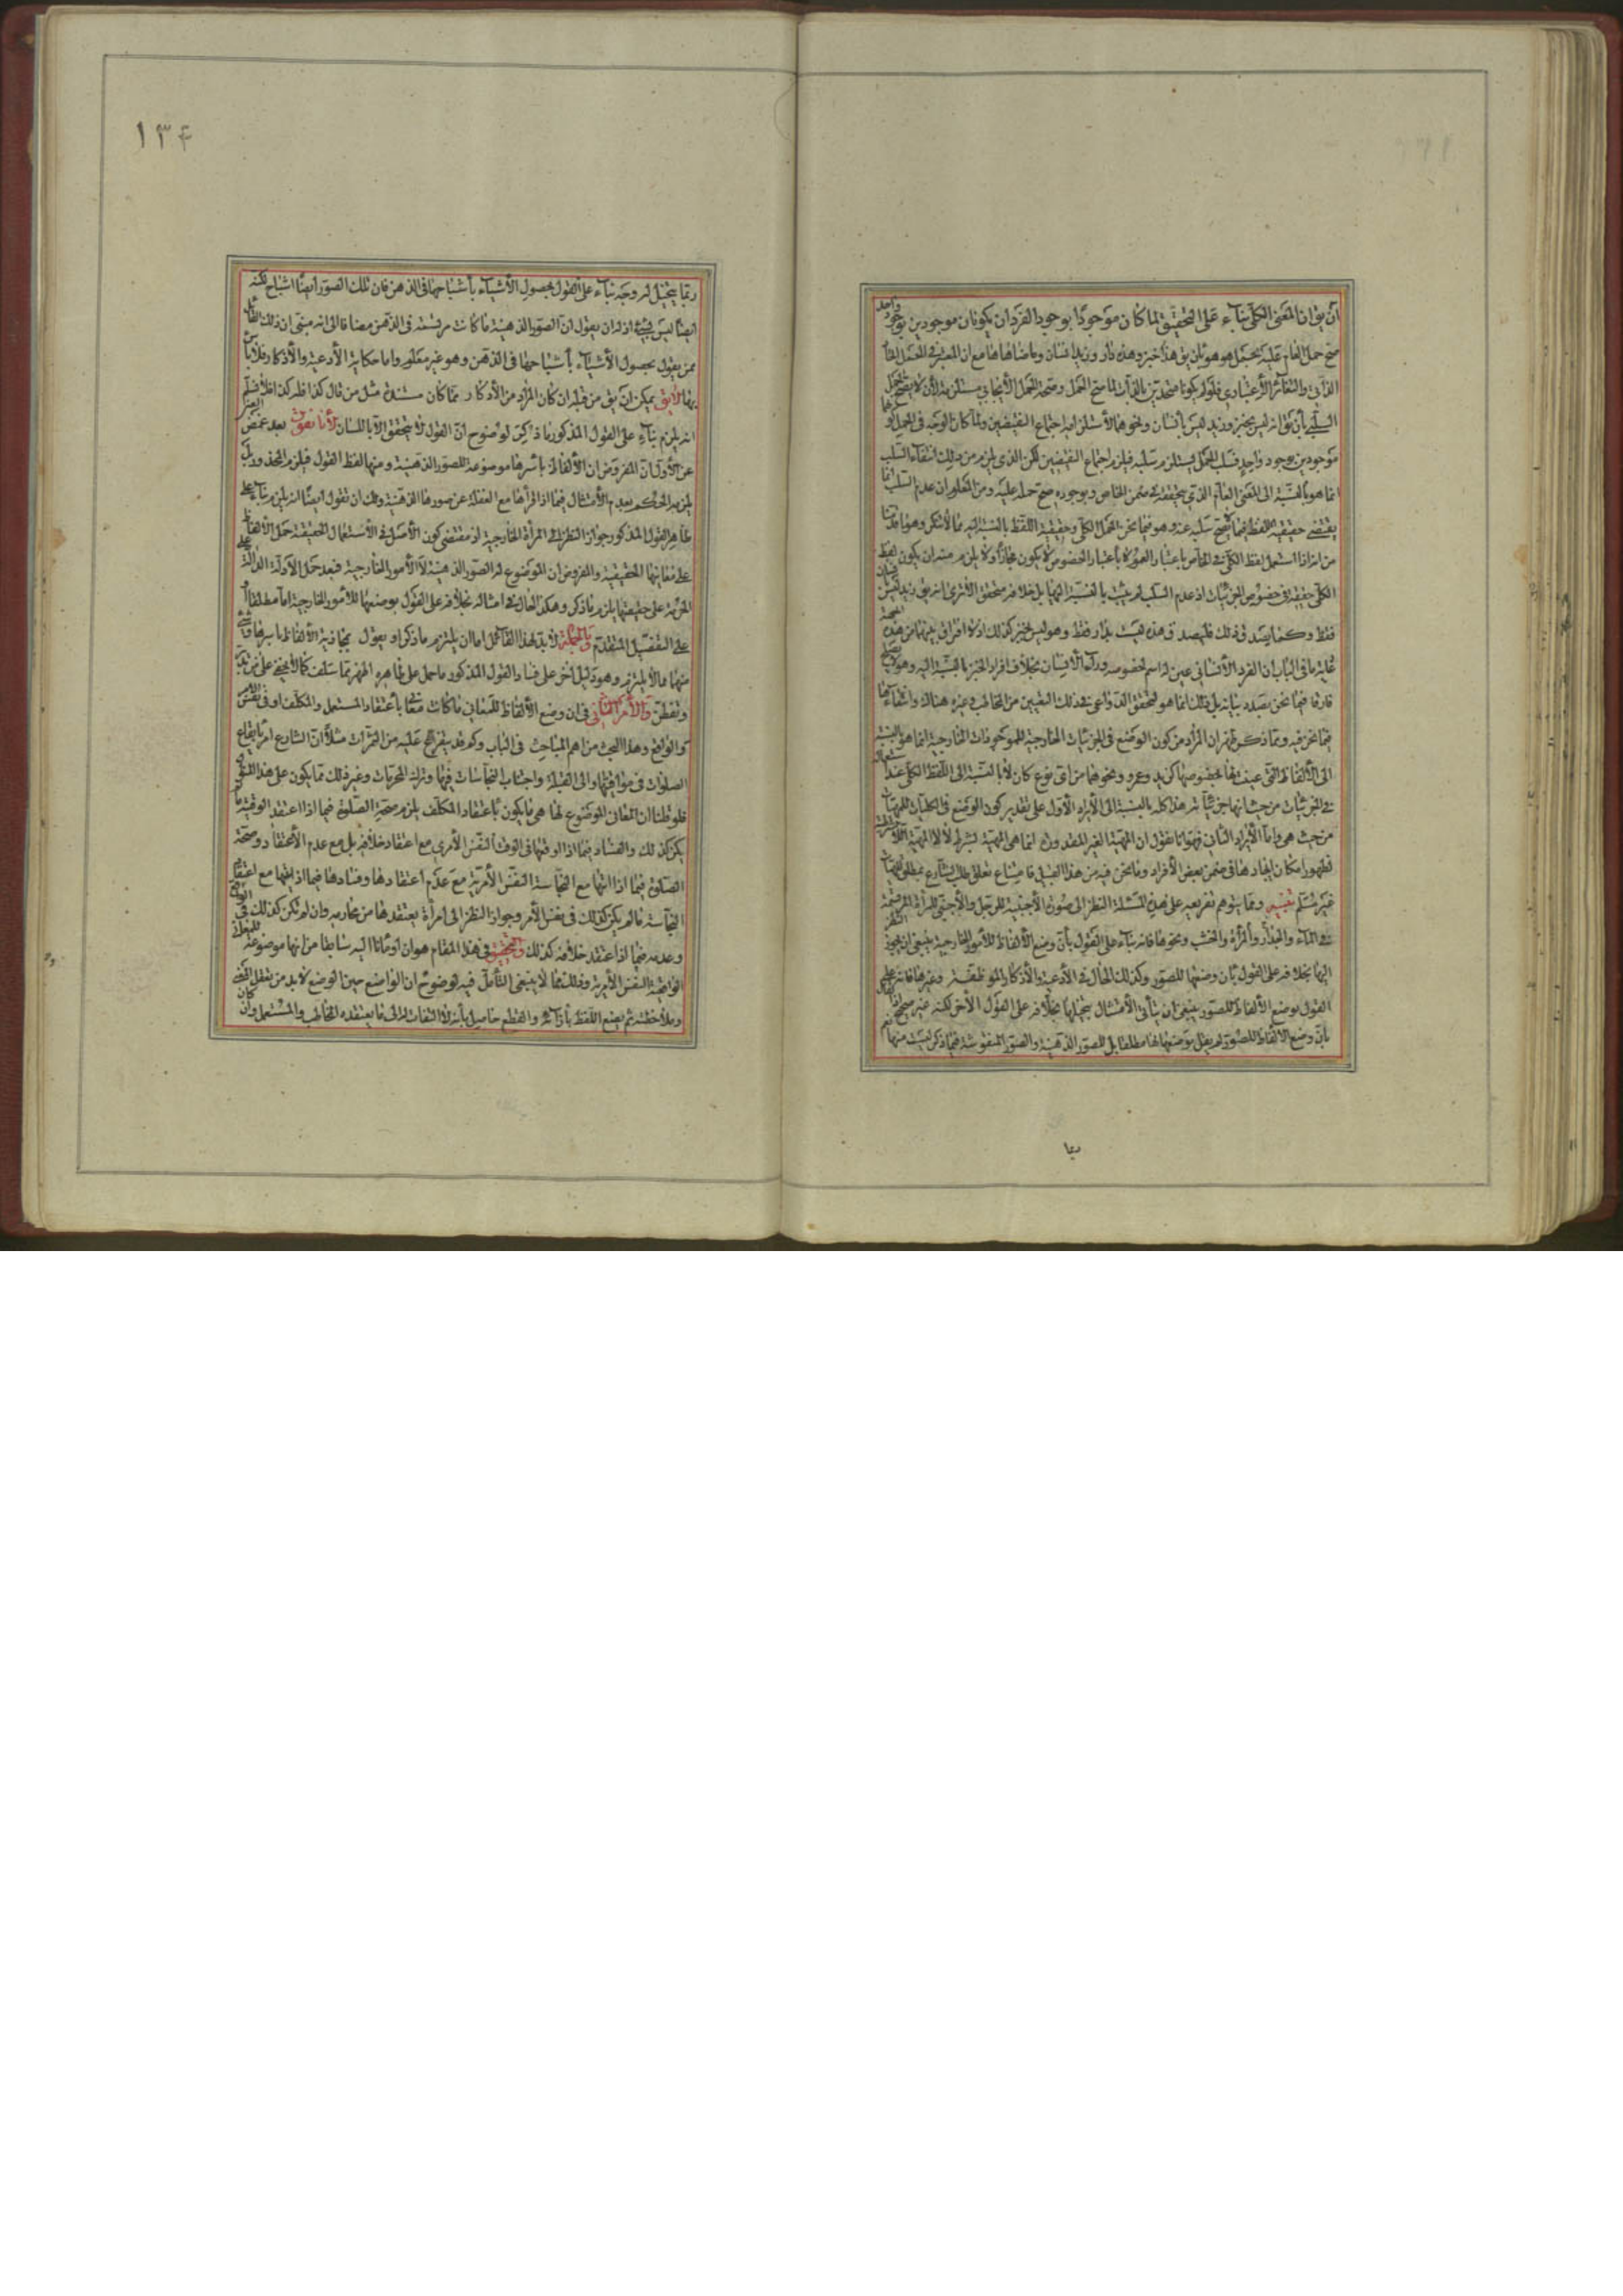 ان يق ان المعنى الكلى بناء على التحقيق لما كان موجودا بوجود الفرد ان يكونان موجودين بوجود واحد
صح حمل العام عليه بحمل هو هو بان يق هذا خبز وهذه نار وزيد انسان وما ضاهاها مع ان المعتبر في الحمل
الذاتي والتغاير الاعتبادي فلو لم يكونا متحدين بالذات لما صح الحمل وصحة الحمل الايجابي مستلزمة لان لا يصح الحمل
السلبي بأن يق انه ليس بخبز وزيد ليس بانسان ونحوهما لاستلزامه اجتماع النقيضين ولما كان الوجه في الحمل كونهما
موجودين بوجود واحد فسلب الحمل يستلزم سلبه فيلزم اجتماع النقيضين لكن الذي يلزم من ذلك انتفاء السلب
انما هو بالنسبة الى المعنى العام الذي تحققه في ضمن الخاص وبوجوده صح حمله عليه ومن المعلوم ان عدم السلب انما
يقتضي حقيقية اللفظ فيما لا يصح سلبه عنه وهو فيما نحن فيه المحل الكلى وحقيقية اللفظ بالنسبة اليه مما لا ننكر وهو ما قدمنا
من انه اذا استعمل لفظ الكلى في الخاص باعتبار العموم لا باعتبار الخصوص لا يكون مجازا ولا يلزم منه ان يكون لفظ
الكلى حقيقة في خصوص الجزئيات اذ عدم السلب لم يثبت بالنسبة اليها بل خلافه متحقق الا ترى انه يق زيد ليس انسان
فقط وكفا يصد ق ذلك فليصدق هذه ليست بنار فقط وهو ليس بخبز كذلك اذ لا افتراق بينهما من هذه الجهة
غاية ما في الباب ان الفرد الانساني عين له اسم لخصوصه وراء الانسان بخلاف افراد الخبز بالنسبة اليه وهو لا يصلح
فارقا فيما نحن بصدد بيانه بل ذلك انما هو لتحقق الدواعي في ذلك التعيين من التخاطب وغيره هناك وانتفاءها
فيما نحن فيه ومما ذكر ظهر ان المراد من كون الوضع في الجزئيات الخارجية للموجودات الخارجية انما هو بالنسبة
الى الالفاظ التي عينت لها بخصوصها كزيد وعمرو ونحوهما من اي نوع كان لا بالنسبة الى اللفظ الكلى عند استعماله
في الجزئيات من حيث انها جزئيات ثم هذا كله بالنسبة الى الايراد الاول على تقدير كون الوضع في الكليات للمهيات
من حيث هي واما الايراد الثاني فجوابه انا نقول ان المهية الغير المقدورة انما هي المهية بشرط لا لا المهية اللا بشرط
لظهور امكان ايجادها في ضمن بعض الافراد وما نحن فيه من هذا القبيل فامتناع تعلق طلب الشارع بمطلق المهيات
غير مسلم تنبيه ومما يتوهم تفريعه على هذه المسئلة النظر الى صورة الاجنبية للرجل والاجنبي للمرأة المرتسمة
في الماء والجدار والمرأة والخشب ونحوها فانه بناء على القول بأن وضع الالفاظ للامور الخارجية ينبغي ان يجوز النظر
اليها بخلافه على القول بان وضعها للصور وكذلك الحال في الادعية والاذكار الموظفة وغيرها فانه على
القول بوضع الالفاظ للصور ينبغي ان يتأتى الامتثال بتخيلها بخلافه على القول الاخر لكنه غير صحيح اذ القائل
بان وضع الالفاظ للصور لم يقل بوضعها لها مطلقا بل للصور الذهنية والصور المنقوشة فيما ذكر ليست منها نعم
ربما
١٣۴
ربما يتخيل له وجه بناء على القول بحصول الاشياء بأشباحها في الذهن فان تلك الصور ايضا اشباح لكنه
ايضا ليس بشيء اذ له ان يقول ان الصور الذهنية ما كانت مرتسمة في الذهن مضافا الى انه مبنى ان ذلك القائل
ممن يقول بحصول الاشياء بأشباحها في الذهن وهو غير معلوم واما حكاية الادعية والاذكار فلا بأس
بها لا يق يمكن ان يق من قبله ان كان المراد من الاذكار مما كان مستنده مثل من قال كذا فله كذا فلا نسلم
انه يلزم بناء على القول المذكور ما ذكر لوضوح ان القول لا يتحقق الا باللسان لأنا نقول بعد غمض العين
عن الاول ان المفروض ان الالفاظ باسرها موضوعة للصور الذهنية ومنها لفظ القول فيلزم المحذور بل
يلزمه الحكم بعدم الامتثال فيما اذا قرأها مع الغفلة عن صورها الذهنية ولك ان تقول ايضا انه يلزم بناء على
ظاهر القول المذكور جواز النظر الى المرأة الخارجية اذ مقتضى كون الاصل في الاستعمال الحقيقة حمل الالفاظ
على معانيها الحقيقية والمفروض ان الموضوع له الصور الذهنية لا الامور الخارجية فبعد حمل الادلة الدالة على
الحرمة على حقيقتها يلزم ما ذكر وهكذا الحال في امثاله بخلافه على القول بوضعها للامور الخارجية اما مطلقا او
على التفصيل المتقدم وبالجملة لا بد لهذا القائل اما ان يلتزم ما ذكر او يقول بمجازية الالفاظ باسرها وشيء
منهما مما لا يلتزم وهو دليل اخر على فساد القول المذكور ما حمل على ظاهره المهم مما سلف كما لا يخفى على من تدبر
وتفطن والامر الثاني في ان وضع الالفاظ للمعاني ما كانت معا باعتقاد المستعمل والمكلف او في نفس الامر
والواقع وهذا البحث من اهم المباحث في الباب وكم قد يتفرع عليه من الثمرات مثلا ان الشارع امر بايقاع
الصلوات في مواقيتها والى القبلة واجتناب النجاسات فيها وترك المحرمات وغير ذلك مما يكون على هذا المنوال
فلو قلنا ان المعاني الموضوع لها هي ما يكون باعتقاد المكلف يلزم صحة الصلوة فيما اذا اعتقد الوقتية ما لم
يكن كذلك والفساد فيما اذا اوقعها في الوقت النفس الأمري مع اعتقاد خلافه بل مع عدم الاعتقاد وصحة
الصلوة فيما اذا اتى بها مع النجاسة النفس الأمرية مع عدم اعتقادها وفسادها فيما اذا اتى بها مع اعتقاد
النجاسة ما لم يكن كذلك في نفس الأمر وجواز النظر الى امرأة يعتقدها من محارمه وان لم تكن كذلك في الواقع
وعدمه فيما اذا اعتقد خلافه كذلك والتحقيق في هذا المقام هو ان اومأنا اليه سابقا من انها موضوعة للمعاني
الواقعية النفس الأمرية وذلك مما لا ينبغى التأمل فيه لوضوح ان الواضع حين الوضع لا بد من تعقل المعنى
وملاحظته ثم يضع اللفظ بازائه والقطع حاصل بأنه لا التفات له الى ما يعتقده المخاطب والمستعمل وان كان